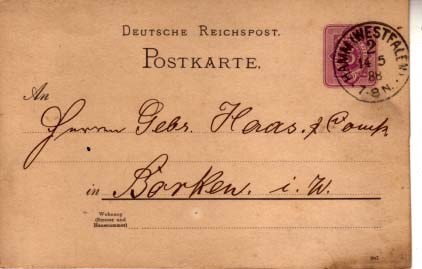 DEUTSCHE REICHSPOST.
POSTKARTE.
HAMM (WESTFALEN)
2
14 5
88
7-8N.
An
Herrn Gebr. Haas & Comp.
in Borken i. W.
Wohnung
(Strasse und
Hausnummer)